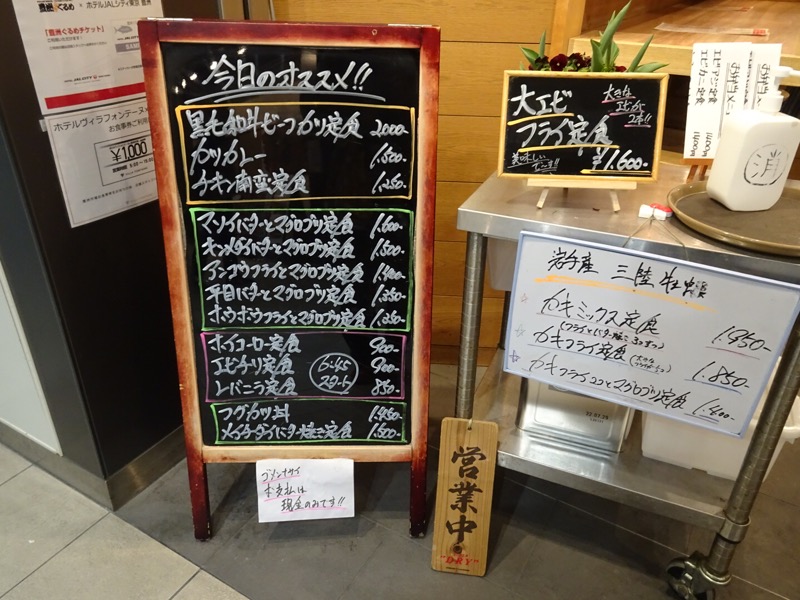 今日のオススメ!!
黒毛和牛ビーフカツ定食 2,000-
カツカレー 1,500-
チキン南蛮定食 1,250-
マソイバターとマグロブリ定食 1,600-
キンメダイバターとマグロブリ定食 1,500-
アンコウフライとマグロブリ定食 1,400-
平目バターとマグロブリ定食 1,350-
ホウボウフライとマグロブリ定食 1,350-
ホイコーロー定食 900-
エビチリ定食 900-
レバニラ定食 850-
6:45
スタート
フグカツ丼 1,450-
メイチダイバター焼き定食 1,500-
ゴメンナサイ
お支払は
現金のみです!!
営業中
"DRY"
大エビ
フライ定食
大きな
エビが
2本!!
美味しい
でーす!!
¥1,600-
岩手産 三陸 牡蠣
カキミックス定食 1,950-
カキフライ定食 1,850-
カキフライ2コとマグロブリ定食 1,400-
消
ホテルJALシティ東京 豊洲
「豊洲ぐるめチケット」
ホテルヴィラフォンテーヌ
お食事券ご利用
¥1,000